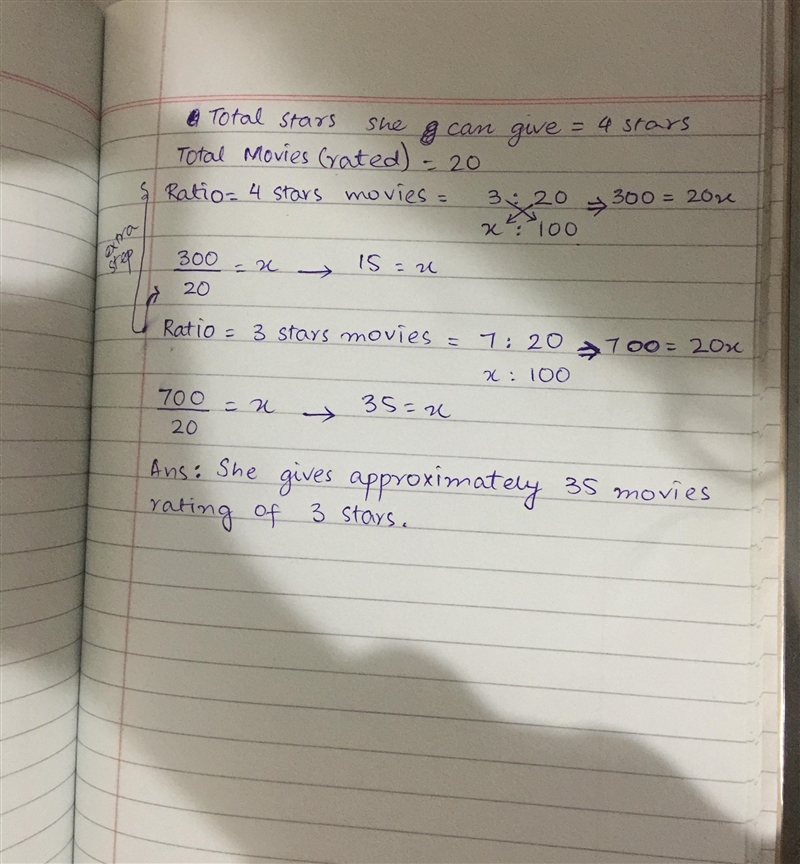 Total stars she can give = 4 stars
Total Movies (rated) = 20
Ratio = 4 stars movies = 3 : 20 ⇒ 300 = 20x
x : 100
extra step
300/20 = x → 15 = x
Ratio = 3 stars movies = 7 : 20 ⇒ 700 = 20x
x : 100
700/20 = x → 35 = x
Ans: She gives approximately 35 movies
rating of 3 stars.